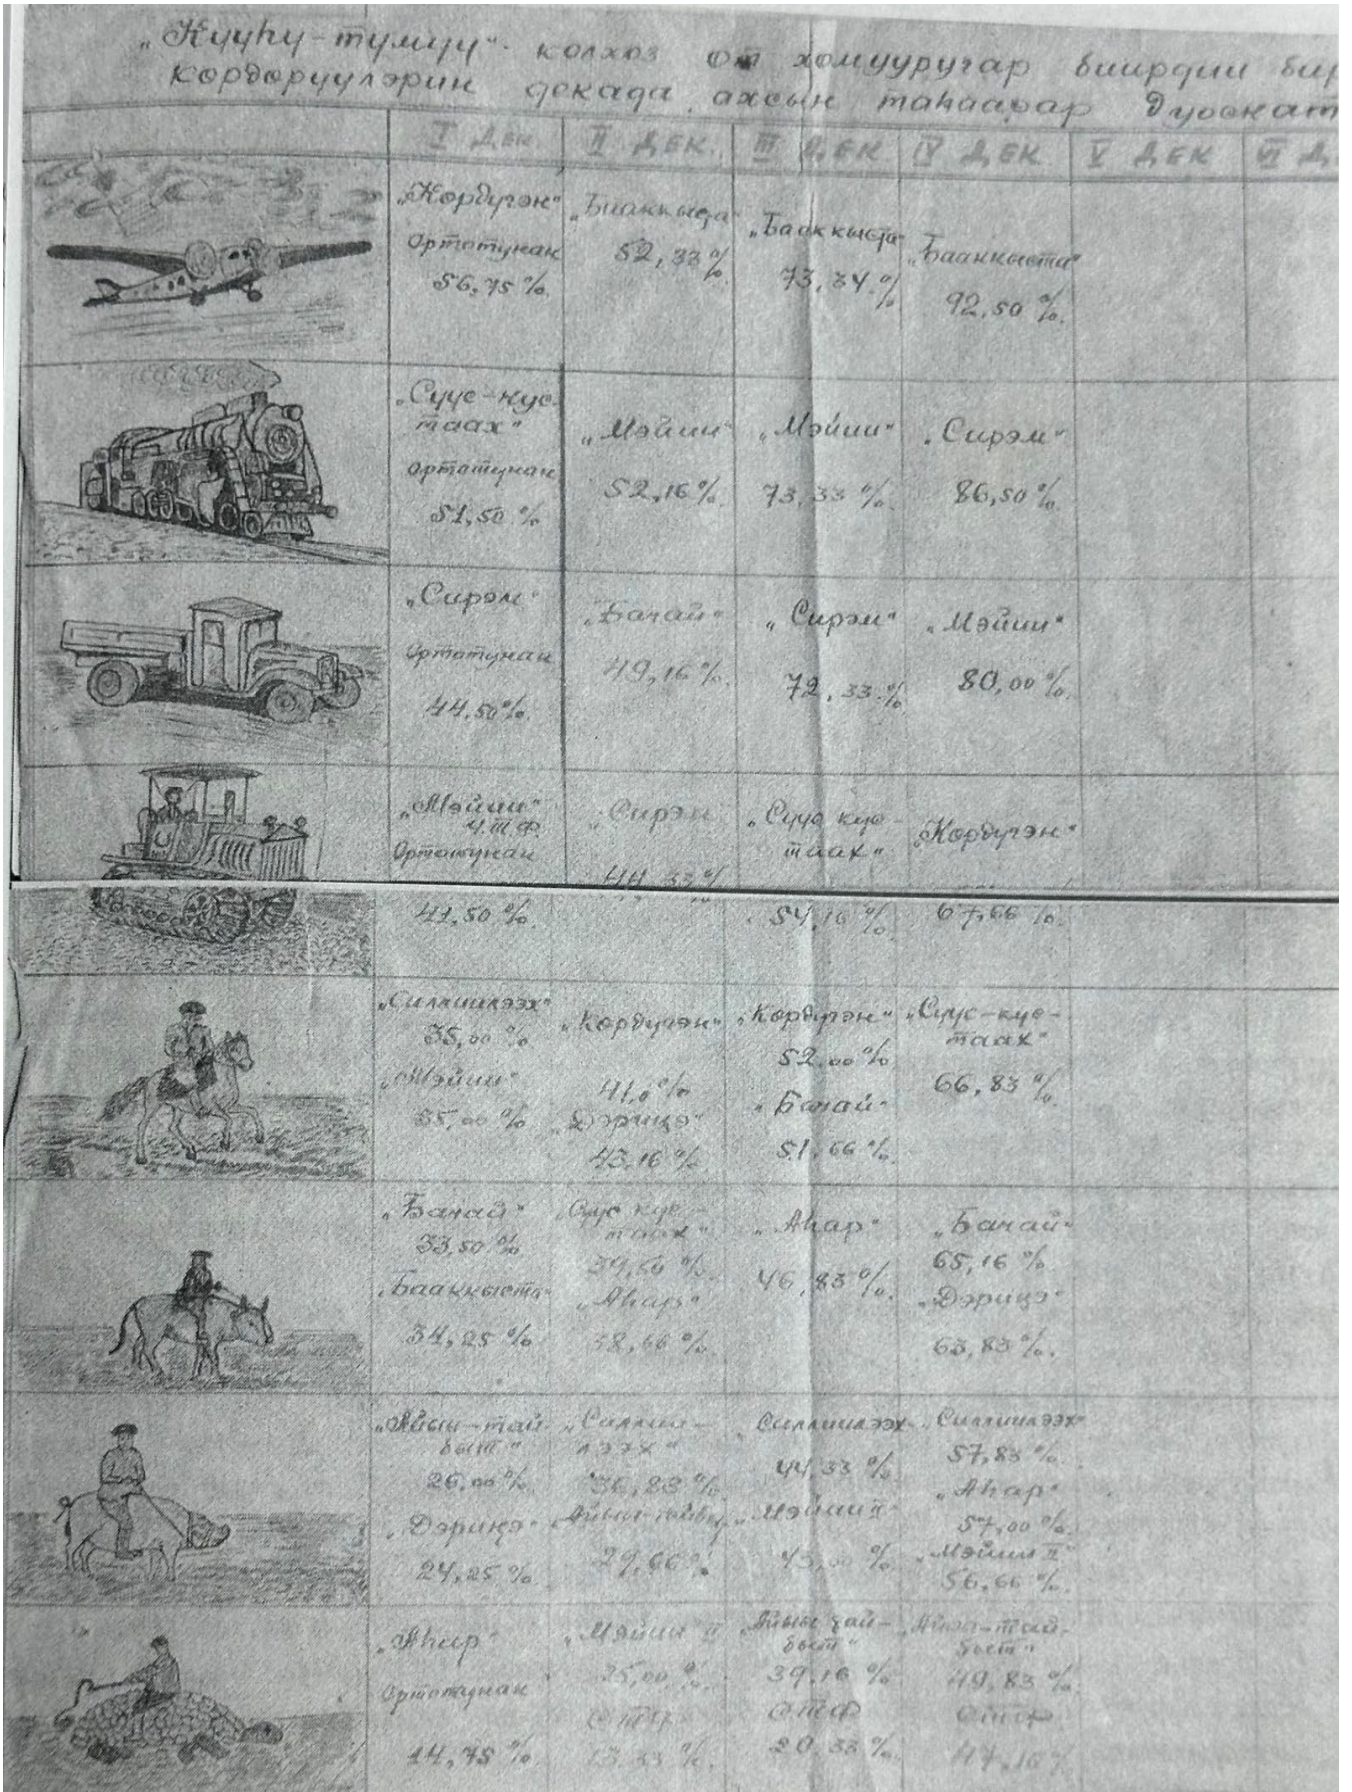 „Кууһу-тумуу" колхоз от хомууругар биирдии
көрдөрүүлэрин декада ахсын таһаарар
I ДЕК II ДЕК. III ДЕК IV ДЕК V ДЕК VI Д
„Көрдүгэн"
Ортотунан
56,75 %
52,33 %
„Бааккыста"
73,34 %
„Бааккыста"
92,50 %.
„Суус-күс-
таах"
Ортотунан
51,50 %
„Мэйии"
52,16 %.
„Мэйии"
73,33 %.
„Сирэм"
86,50 %.
„Сирэм"
Ортотунан
44,50 %.
„Бачай"
49,16 %.
„Сирэм"
72,33 %
„Мэйии"
80,00 %.
„Мэйии"
Ч.Т.Ф.
Ортотунан
41,50 %.
„Сирэм
44,33 %
„Суус күс-
таах"
54,16 %
„Көрдүгэн"
67,66 %.
„Силлиилээх"
35,00 %
„Мэйии"
35,00 %
„Көрдүгэн"
41,0 %
„Дэрицэ"
43,16 %
„Көрдүгэн"
52,00 %
„Бачай"
51,66 %.
„Суус-күс-
таах"
66,83 %.
„Бачай"
33,50 %
„Бааккыста"
34,25 %
„Суус күс-
таах"
39,50 %
„Аһар"
38,66 %.
„Аһар"
46,83 %.
„Бачай"
65,16 %
„Дэрицэ"
63,83 %.
„Айыы-тай-
быт"
26,00 %
„Дэрицэ"
24,25 %.
„Силлии-
лээх"
36,83 %.
29,66 %.
Силлиилээх
44,33 %.
„Мэйии II"
%
„Силлиилээх"
57,83 %.
„Аһар"
57,00 %.
„Мэйии II"
56,66 %.
„Аһар"
Ортотунан
14,75 %
„Мэйии II
25,00 %.
ОТФ
13,33 %.
„Айыы тай-
быт"
39,16 %
ОТФ
20,33 %.
„Айыы-тай-
быт"
49,83 %.
ОТФ
47,16 %